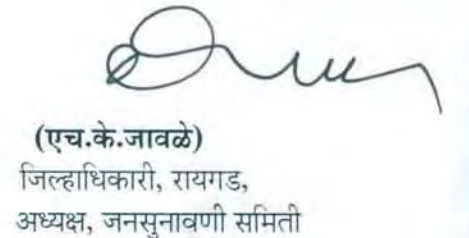 (एच.के.जावळे)
जिल्हाधिकारी, रायगड,
अध्यक्ष, जनसुनावणी समिती